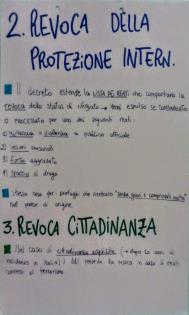 2. REVOCA DELLA
PROTEZIONE INTERN.
Il decreto estende la LISTA DEI REATI che comportano la
revoca dello status di rifugiato → verrà espulso se condannato
o processato per uno dei seguenti reati:
1) Minaccia o violenza a pubblico ufficiale
2) lesioni personali
3) furto aggravato
4) spaccio di droga
Stessa cosa per i profughi che rientrano "senza gravi e comprovati motivi"
nel paese di origine.
3. REVOCA CITTADINANZA
Nel caso di cittadinanza acquisita (→ dopo 10 anni di
residenza in Italia) il DDL prevede la revoca in caso di reati
connessi al terrorismo.